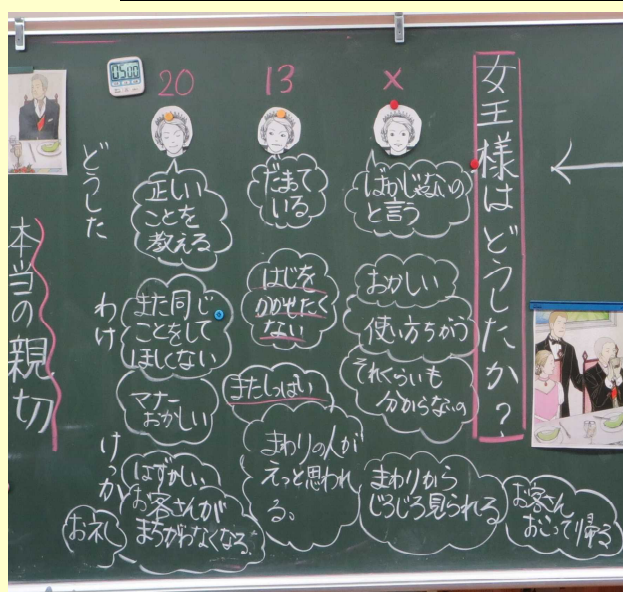 女王様はどうしたか？
×
ばかじゃないの
と言う
おかしい
使い方ちがう
それくらいも
分からないの
まわりから
じろじろ見られる
お客さん
おこって帰る
13
だまって
いる
はじを
かかせたく
ない
またしっぱい
まわりの人が
えっと思われ
る。
20
正しい
ことを
教える
また同じ
ことをして
ほしくない
マナー
おかしい
はずかしい
お客さんが
まちがわなくなる
お礼
どうした
わけ
けっか
0500
本当の親切